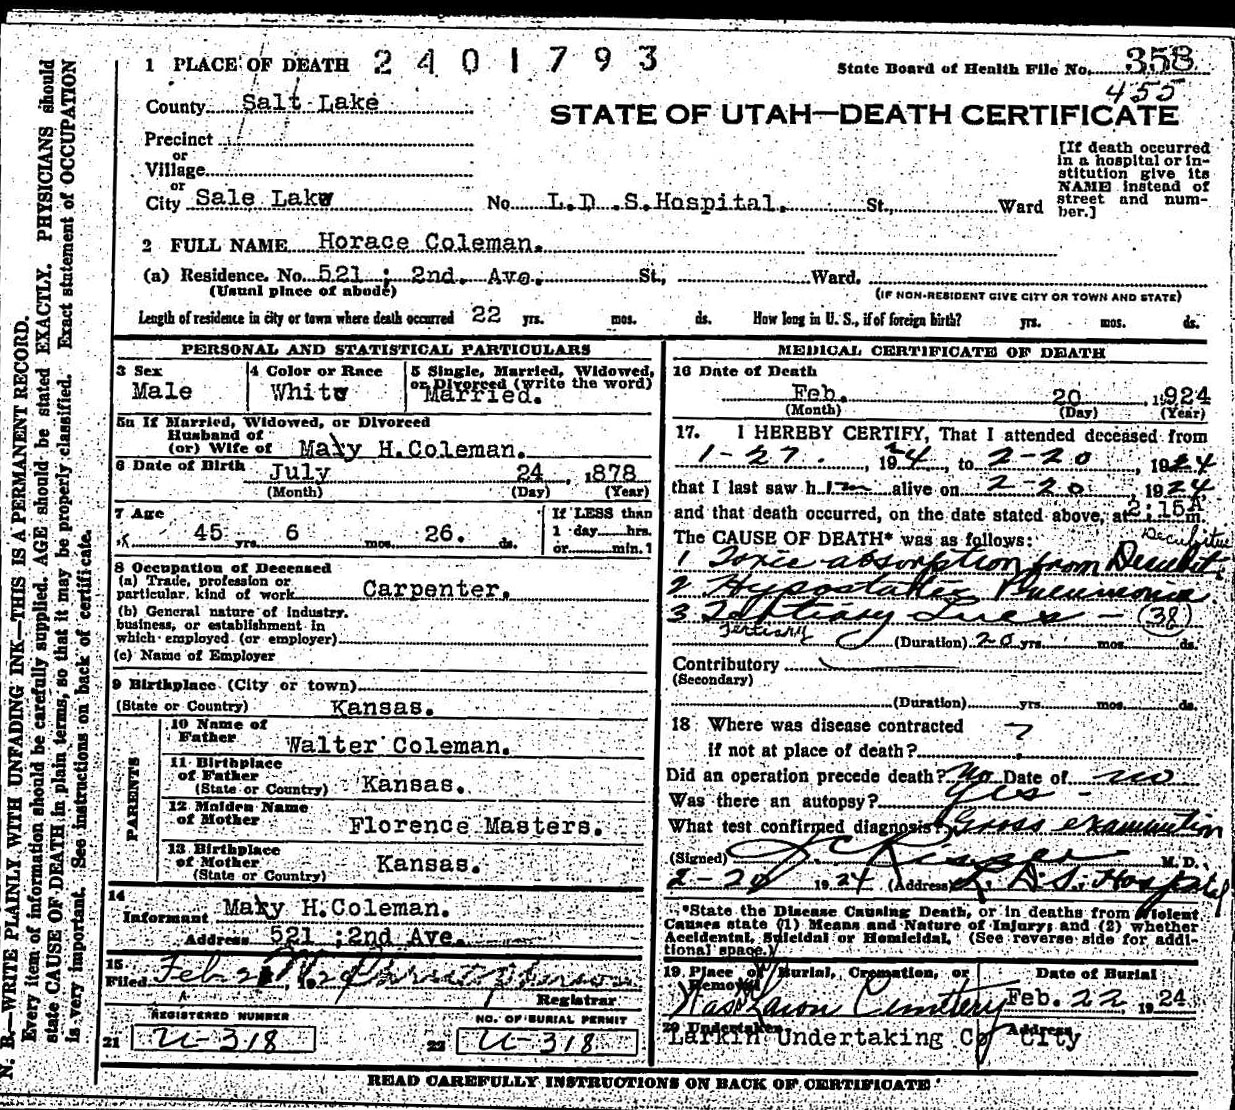 N. B.—WRITE PLAINLY WITH UNFADING INK—THIS IS A PERMANENT RECORD.
Every item of information should be carefully supplied. AGE should be stated EXACTLY. PHYSICIANS should
state CAUSE OF DEATH in plain terms, so that it may be properly classified. Exact statement of OCCUPATION
is very important. See instructions on back of certificate.
1 PLACE OF DEATH 2401793
State Board of Health File No. 358
455
County Salt Lake
STATE OF UTAH—DEATH CERTIFICATE
Precinct
or
Village
or
City Sale Lake No. L.D.S.Hospital. St., Ward
[If death occurred
in a hospital or in-
stitution give its
NAME instead of
street and num-
ber.]
2 FULL NAME Horace Coleman.
(a) Residence. No. 521 ; 2nd. Ave. St., Ward.
(Usual place of abode) (IF NON-RESIDENT GIVE CITY OR TOWN AND STATE)
Length of residence in city or town where death occurred 22 yrs. mos. ds. How long in U. S., if of foreign birth? yrs. mos. ds.
PERSONAL AND STATISTICAL PARTICULARS
3 Sex
Male
4 Color or Race
White
5 Single, Married, Widowed,
or Divorced (write the word)
Married.
5a If Married, Widowed, or Divorced
Husband of
(or) Wife of Mary H.Coleman.
6 Date of Birth July 24 , 1878
(Month) (Day) (Year)
7 Age
45 yrs. 6 mos. 26. ds.
If LESS than
1 day hrs.
or min. ?
8 Occupation of Deceased
(a) Trade, profession or
particular kind of work Carpenter.
(b) General nature of industry,
business, or establishment in
which employed (or employer)
(c) Name of Employer
9 Birthplace (City or town)
(State or Country) Kansas.
PARENTS
10 Name of
Father Walter Coleman.
11 Birthplace
of Father
(State or Country) Kansas.
12 Maiden Name
of Mother Florence Masters.
13 Birthplace
of Mother
(State or Country) Kansas.
14
Informant Mary H.Coleman.
Address 521 ;2nd Ave.
15
Filed Feb
Registrar
REGISTERED NUMBER
21 U-318
NO. OF BURIAL PERMIT
22 U-318
MEDICAL CERTIFICATE OF DEATH
16 Date of Death
Feb. 20 , 1924
(Month) (Day) (Year)
17. I HEREBY CERTIFY, That I attended deceased from
1-27. , 1924, to 2-20 , 1924
that I last saw him alive on 2-20 , 1924,
and that death occurred, on the date stated above, at 2:15A m.
The CAUSE OF DEATH* was as follows:
1 Toxic absorption from Decubit
2 Hypostatic Pneumonia
3 Tertiary Lues - (38)
Tertiary (Duration) 20 yrs. mos. ds.
Contributory
(Secondary)
(Duration) yrs mos. ds.
18 Where was disease contracted
if not at place of death? ?
Did an operation precede death? No Date of no
Was there an autopsy? Yes -
What test confirmed diagnosis? Gross examination
(Signed) M. D.,
2-20 1924 (Address) L. D. S. Hospital
*State the Disease Causing Death, or in deaths from Violent
Causes state (1) Means and Nature of Injury; and (2) whether
Accidental, Suicidal or Homicidal. (See reverse side for addi-
tional space.)
19 Place of Burial, Cremation, or
Removal
Was Lawn Cemetery
Date of Burial
Feb. 22, 1924
20 Undertaker Address
Larkin Undertaking Co City
READ CAREFULLY INSTRUCTIONS ON BACK OF CERTIFICATE